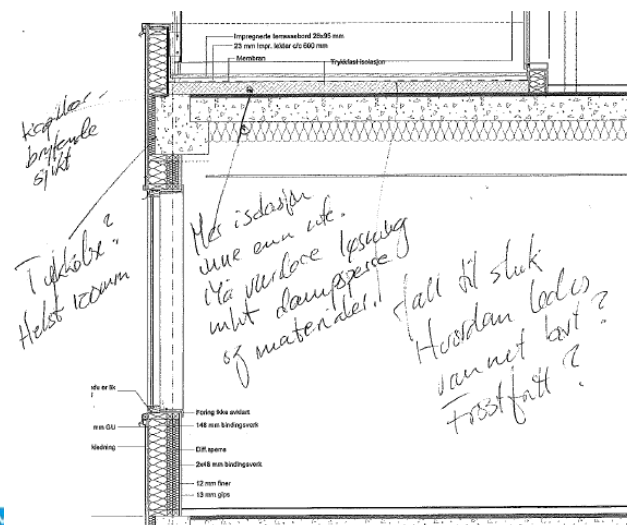 Impregnerte terrassebord 28x95 mm
23 mm impr. lekter c/c 600 mm
Membran
Trykkfast isolasjon
brytende
sjikt
Tykkelse?
Helst 100mm
Mer isolasjon
inne enn ute.
Må vurdere løsning
mht dampsperre
og materialer.
Fall til sluk
Hvordan ledes
vannet bort?
Frostfritt?
Foring ikke avklart
148 mm bindingsverk
mm GU
kledning
Diff.sperre
2x48 mm bindingsverk
12 mm finer
13 mm gips